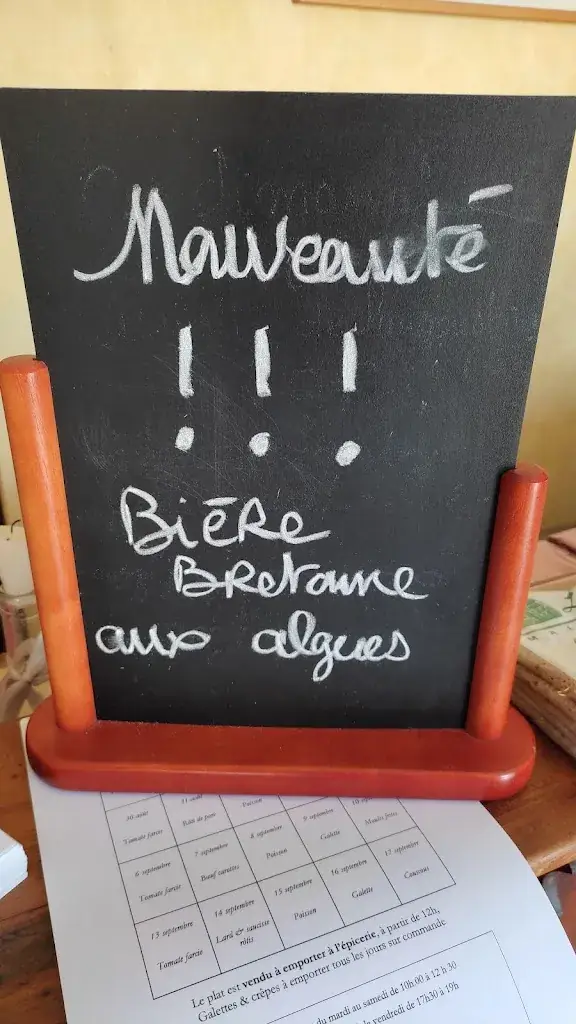 Nouveauté
! ! !
Bière
Bretonne
aux algues
30 août
31 août
Poisson
Tomate farcie
Rôti de porc
6 septembre
7 septembre
8 septembre
9 septembre
Moules frites
Tomate farcie
Bœuf carottes
Poisson
Galette
13 septembre
14 septembre
15 septembre
16 septembre
17 septembre
Tomate farcie
Lard & saucisse
rôtis
Poisson
Galette
Couscous
Le plat est vendu à emporter à l'épicerie, à partir de 12h,
Galettes & crêpes à emporter tous les jours sur commande
du mardi au samedi de 10h00 à 12 h 30
vendredi de 17h30 à 19h